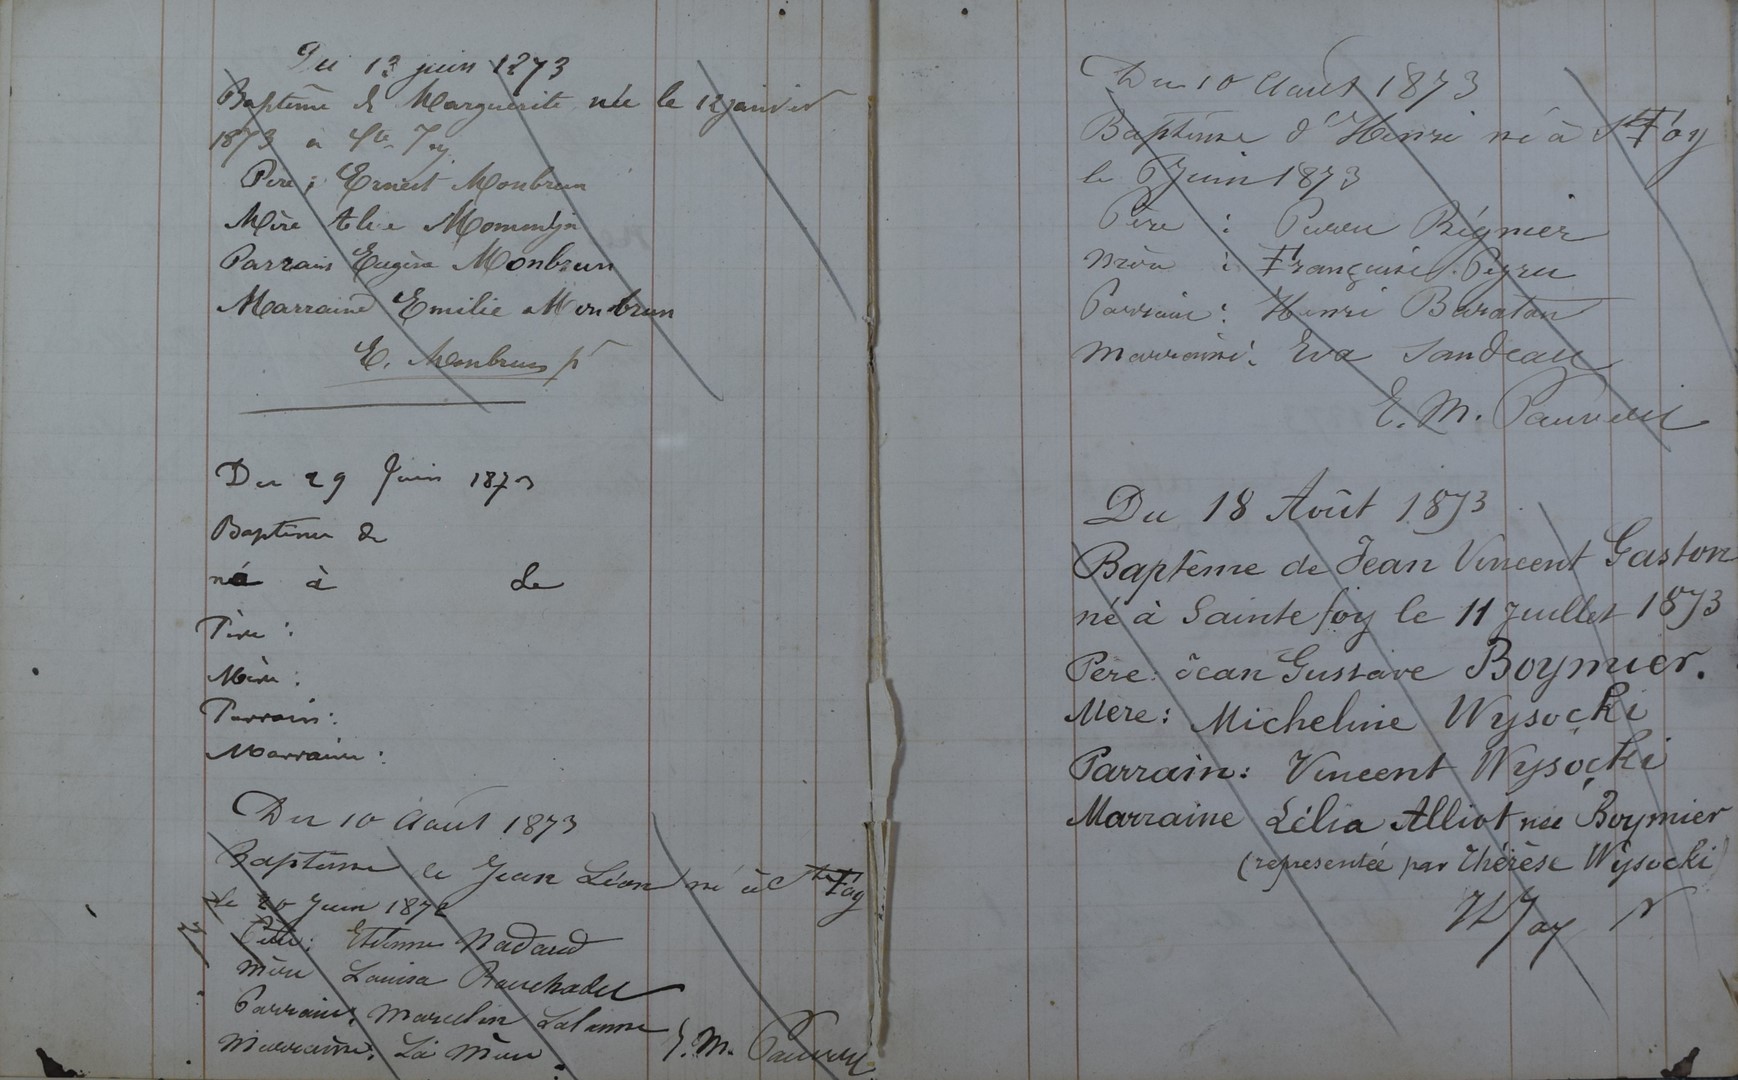 Du 13 juin 1873
Baptême de Marguerite née le 12 janvier
1873 à Ste Foy
Père : Ernest Monbrun
Mère Alice Mommeja
Parrain Eugène Monbrun
Marraine Emilie Monbrun
E. Monbrun p
Du 29 Juin 1873
Baptême de
né à le
Père :
Mère :
Parrain :
Marraine :
Du 10 Août 1873
Baptême de Jean Léon né à Ste Foy
le 20 Juin 1872
Père : Etienne Nadaud
Mère Louisa
Parrain : Marcelin Lalanne
Marraine. La Mère
E. M.
Du 10 Août 1873
Baptême d'Henri né à Ste Foy
le 6 Juin 1873
Père : Pierre Régnier
Mère : Françoise Peyru
Parrain : Henri Baraton
Marraine : Eva Sandeau
E. M.
Du 18 Août 1873
Baptême de Jean Vincent Gaston
né à Sainte foy le 11 Juillet 1873
Père : Jean Gustave Boymier.
Mère : Micheline Wysocki
Parrain : Vincent Wysocki
Marraine Lélia Alliot née Boymier
(representée par Thérèse Wysocki)